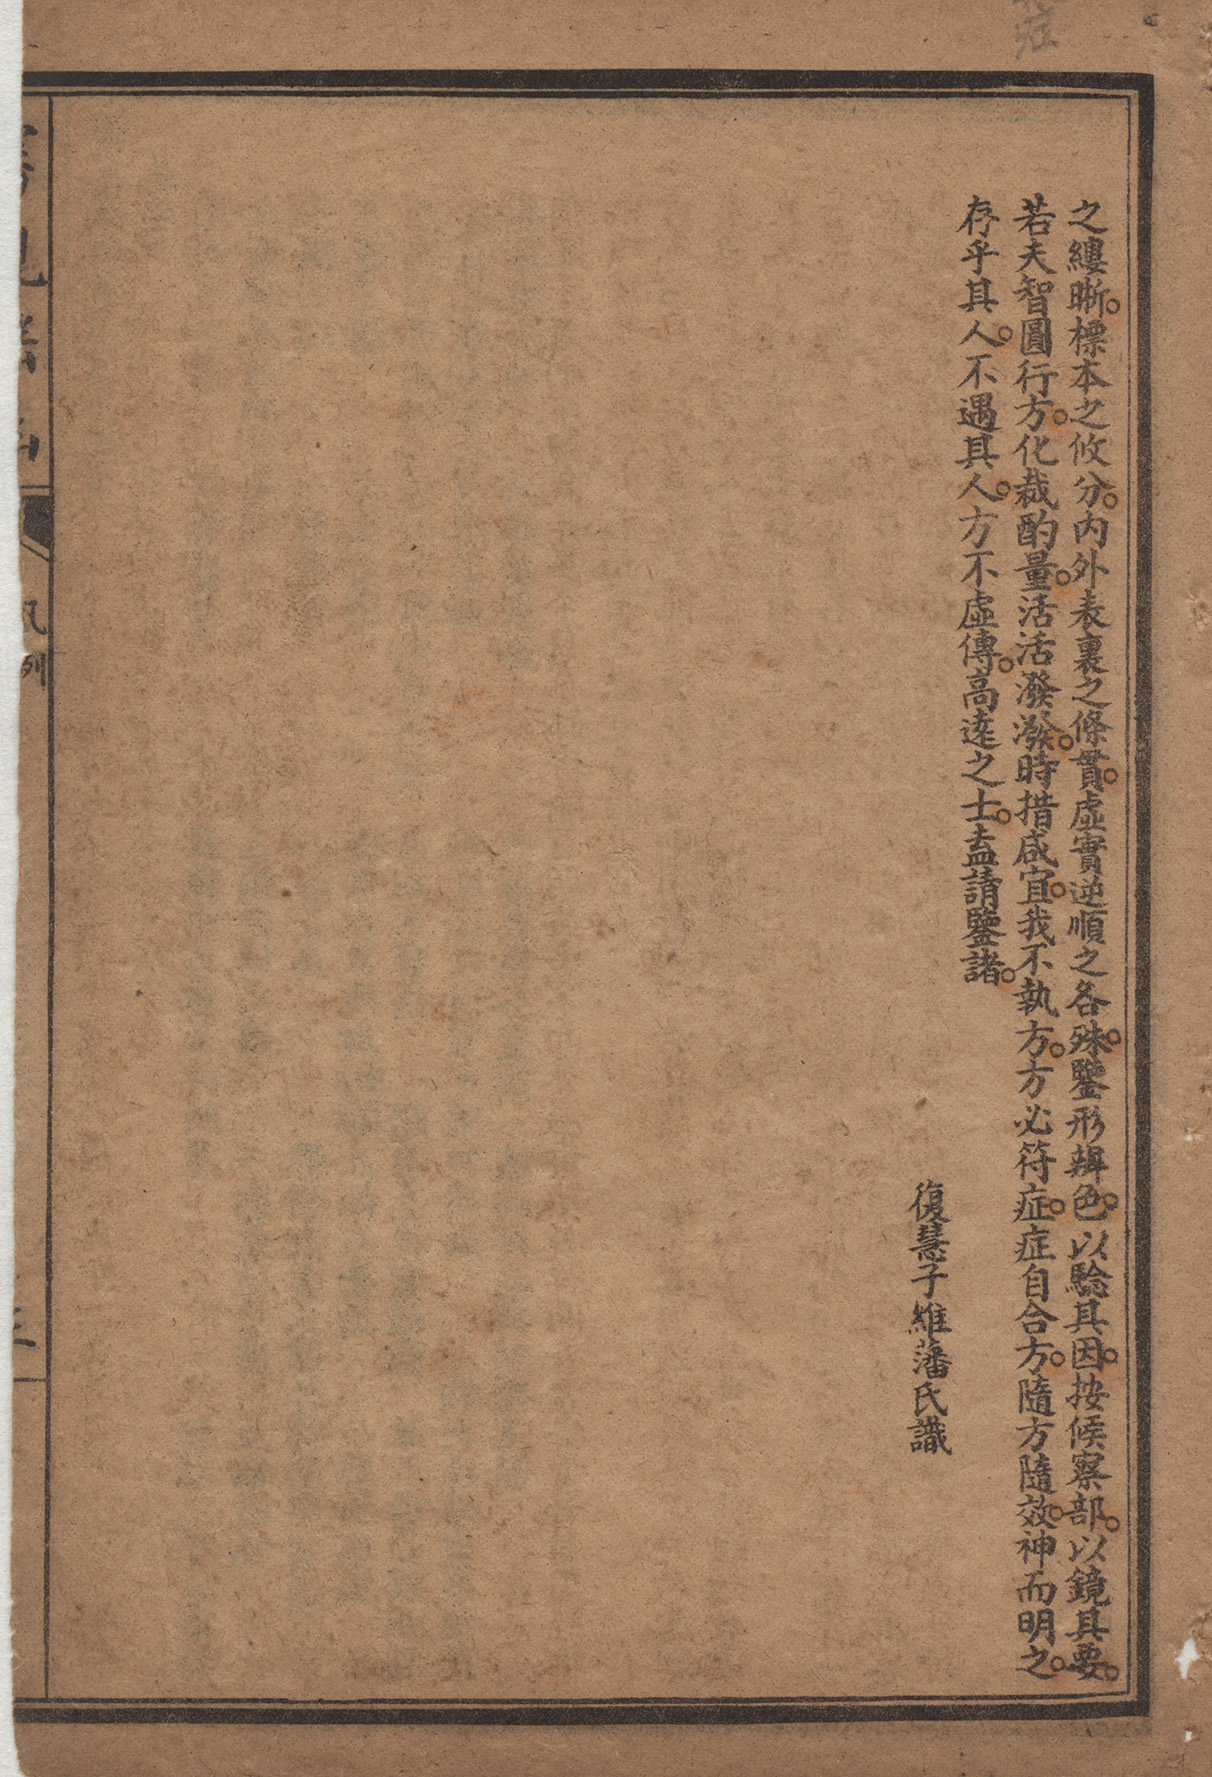 之縷晰標本之攸分內外表裏之條貫虛實逆順之各殊鑒形辨色以驗其因按候察部以鏡其要
若夫智圓行方化裁酌量活活潑潑時措咸宜我不執方方必符症症自合方隨方隨效神而明之
存乎其人不遇其人方不虛傳高達之士盍請鑒諸
復慧子維藩氏識
凡例
三
症